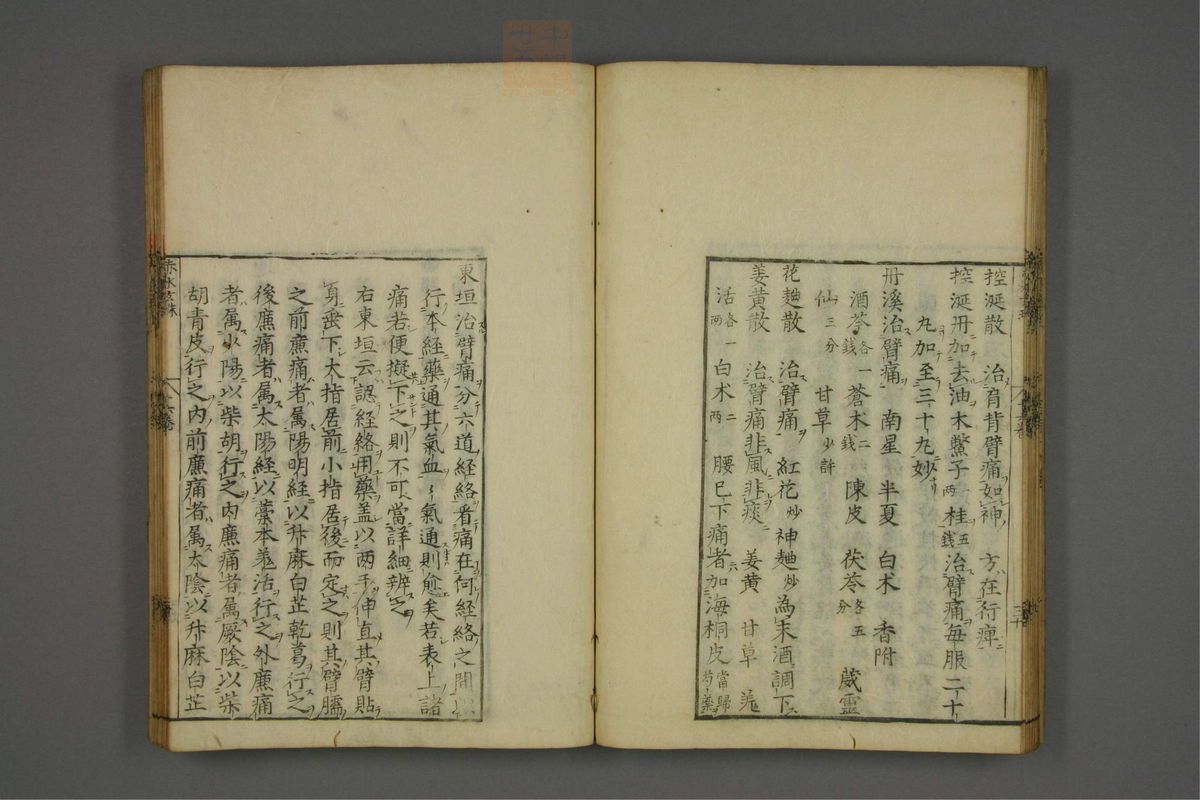 控涎散　治肩背臂痛如神　方在行痺
控涎丹加去油木鱉子一両桂五錢治臂痛每服二十
丸加至三十丸妙
丹溪治臂痛　南星　半夏　白术　香附
酒芩各一錢　蒼术二錢　陳皮　茯苓各五分　葳靈
仙三分　甘草少許
花麯散　治臂痛　紅花炒　神麯炒　為末酒調下
姜黃散　治臂痛非風非痰　姜黃　甘草　羗
活各一両　白术二両　腰已下痛者加海桐皮當歸芍藥
東垣治臂痛分六道經絡看痛在何經絡之間以
行本經藥通其氣血氣通則愈矣若表上諸
痛若便擬下之則不可當詳細辨之
右東垣云認經絡用藥盖以两手伸直其臂貼
身垂下大指居前小指居後而定之則其臂臑
之前廉痛者属陽明經以升麻白芷乾葛行之
後廉痛者属太陽經以藁本羗活行之外廉痛
者属少陽以柴胡行之內廉痛者属厥陰以柴
胡青皮行之內前廉痛者属太陰以升麻白芷
赤水玄珠